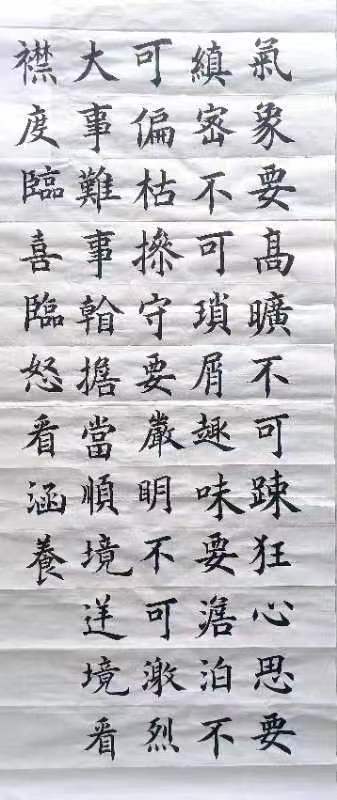 氣象要高曠不可踈狂心思要
縝宻不可瑣屑趣味要澹泊不
可偏枯摻守要嚴明不可激烈
大事難事看擔當順境逆境看
襟度臨喜臨怒看涵養